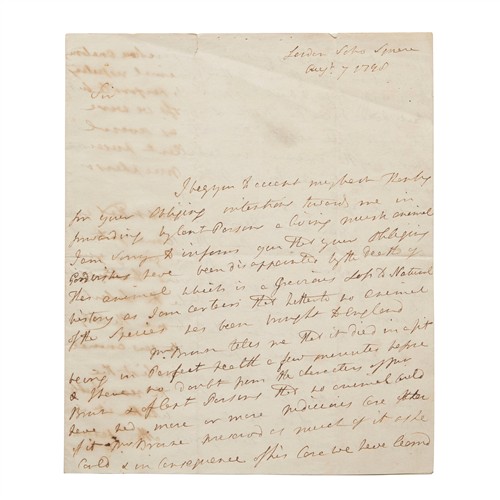 London Soho Square
Augst. 7 1798
Sir
I beg you to accept my best Thanks
for your Obliging intentions toward me in
forwarding by Capt Parsons a living musk animal
I am Sorry to inform you that your Obliging
Good wishes have been disappointed by the death of
this animal which is a Grevious Loss to Natural
history as I am certain that hitherto no animal
of the Species has been brought to England
Mr Braise tells me that it died in a fit
being in Perfect health a few minutes before
& I have no doubt from the characters of Mr
Braise & of Capt Parsons that no animal could
have had more or more judicious care taken
of it Mr Braise preserved as much of it as he
could & in Consequence of his Care we have learnd